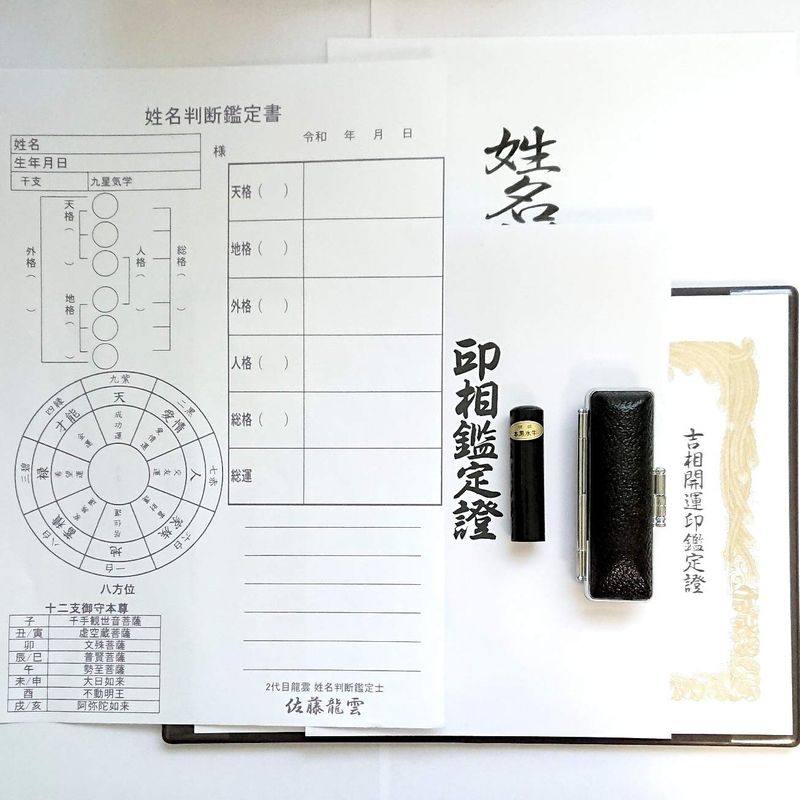 姓名判断鑑定書
令和　年　月　日
様
姓名
生年月日
干支
九星気学
天格（　）
地格（　）
外格（　）
人格（　）
総格（　）
天格（　）
地格（　）
外格（　）
人格（　）
総格（　）
総運
九紫
二黒
七赤
六白
一白
八白
三碧
四緑
天
愛情
人
家族
地
蓄積
禄
才能
成功運
愛情運
交友運
金運
八方位
十二支御守本尊
子 千手観世音菩薩
丑/寅 虚空蔵菩薩
卯 文殊菩薩
辰/巳 普賢菩薩
午 勢至菩薩
未/申 大日如来
酉 不動明王
戌/亥 阿弥陀如来
2代目龍雲 姓名判断鑑定士
佐藤龍雲
姓名
印相鑑定證
本黒水牛
吉相開運印鑑定證